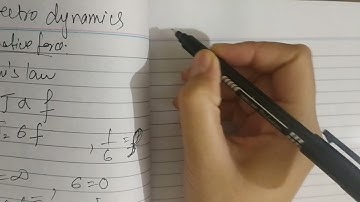 ectro dynamics
otive force.
's law
J α f
= 6 f , 1/6 = ρ
= ∞ , 6 = 0